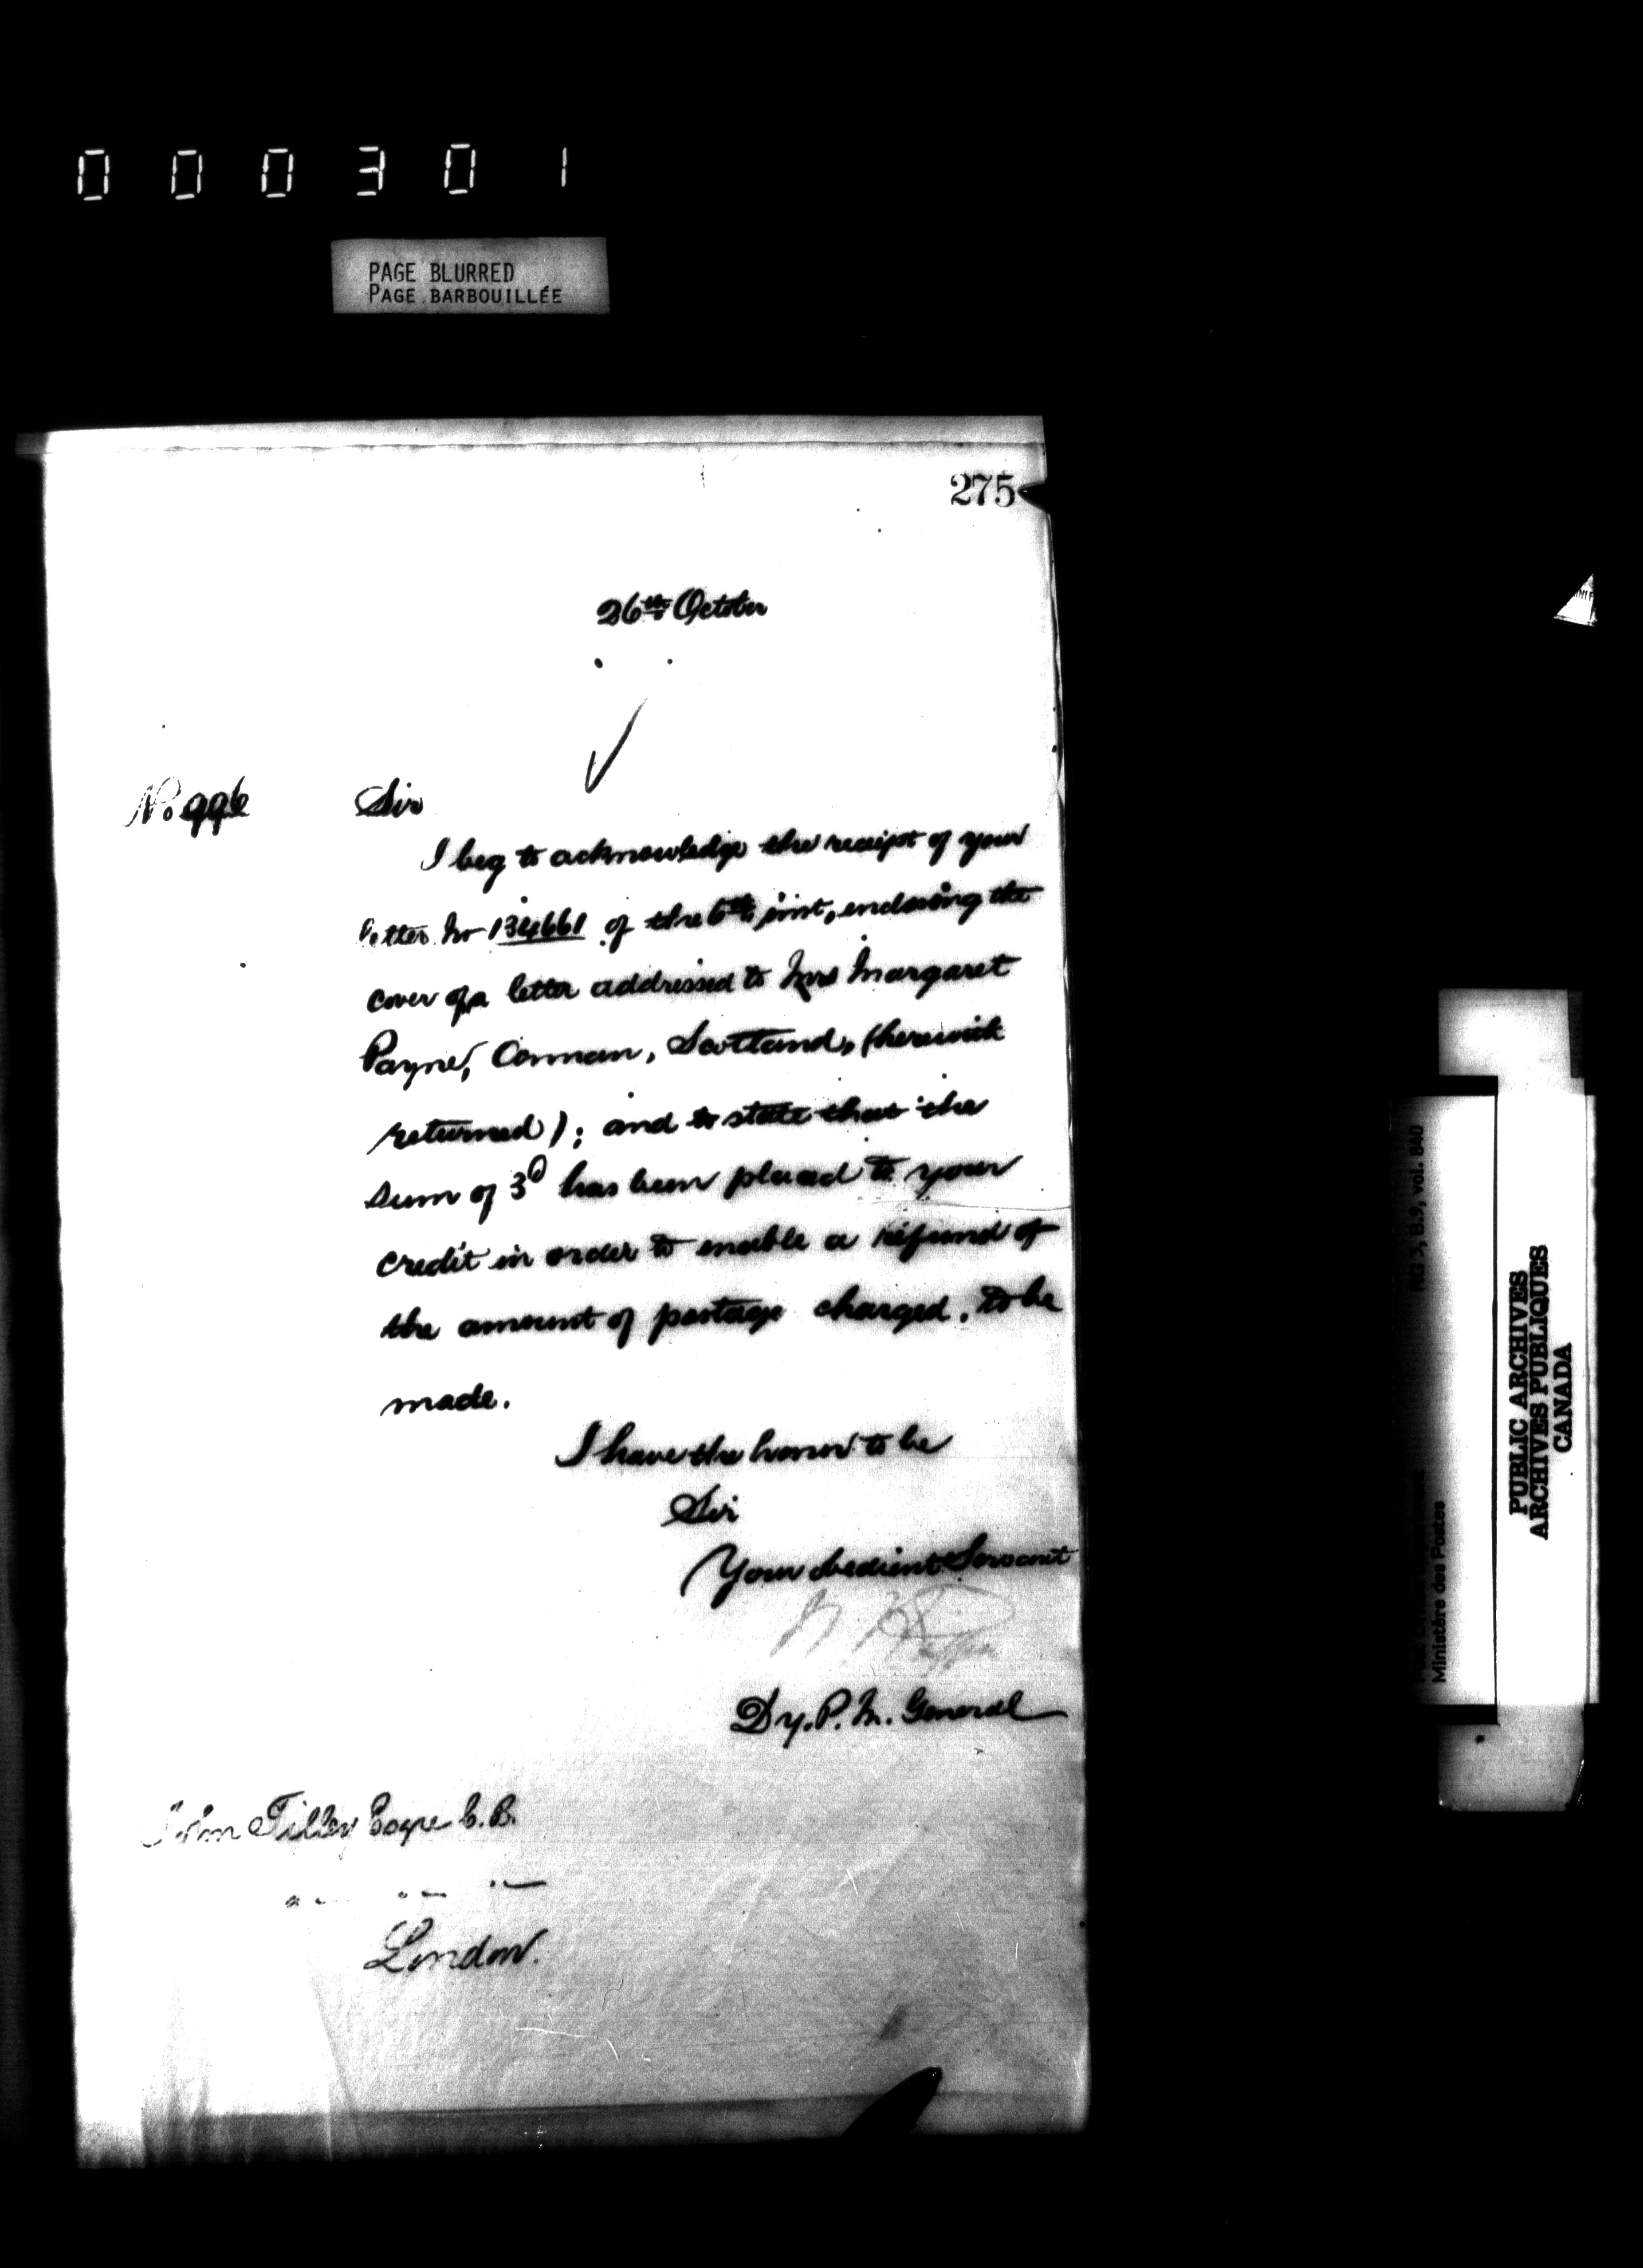 000301
PAGE BLURRED
PAGE BARBOUILLÉE
275
26th October
No 996
Sir
I beg to acknowledge the receipt of your
letter No 134661 of the 6th inst, enclosing the
cover of a letter addressed to Mrs Margaret
Payne, Comman, Scotland, (herewith
returned); and to state that the
sum of 3d has been placed to your
credit in order to enable a refund of
the amount of postage charged, to be
made.
I have the honor to be
Sir
Your obedient Servant
Dy. P. M. General
John Tilley Esqre C.B.
London.
RG 3, B.9, vol. 840
Ministère des Postes
PUBLIC ARCHIVES
ARCHIVES PUBLIQUES
CANADA